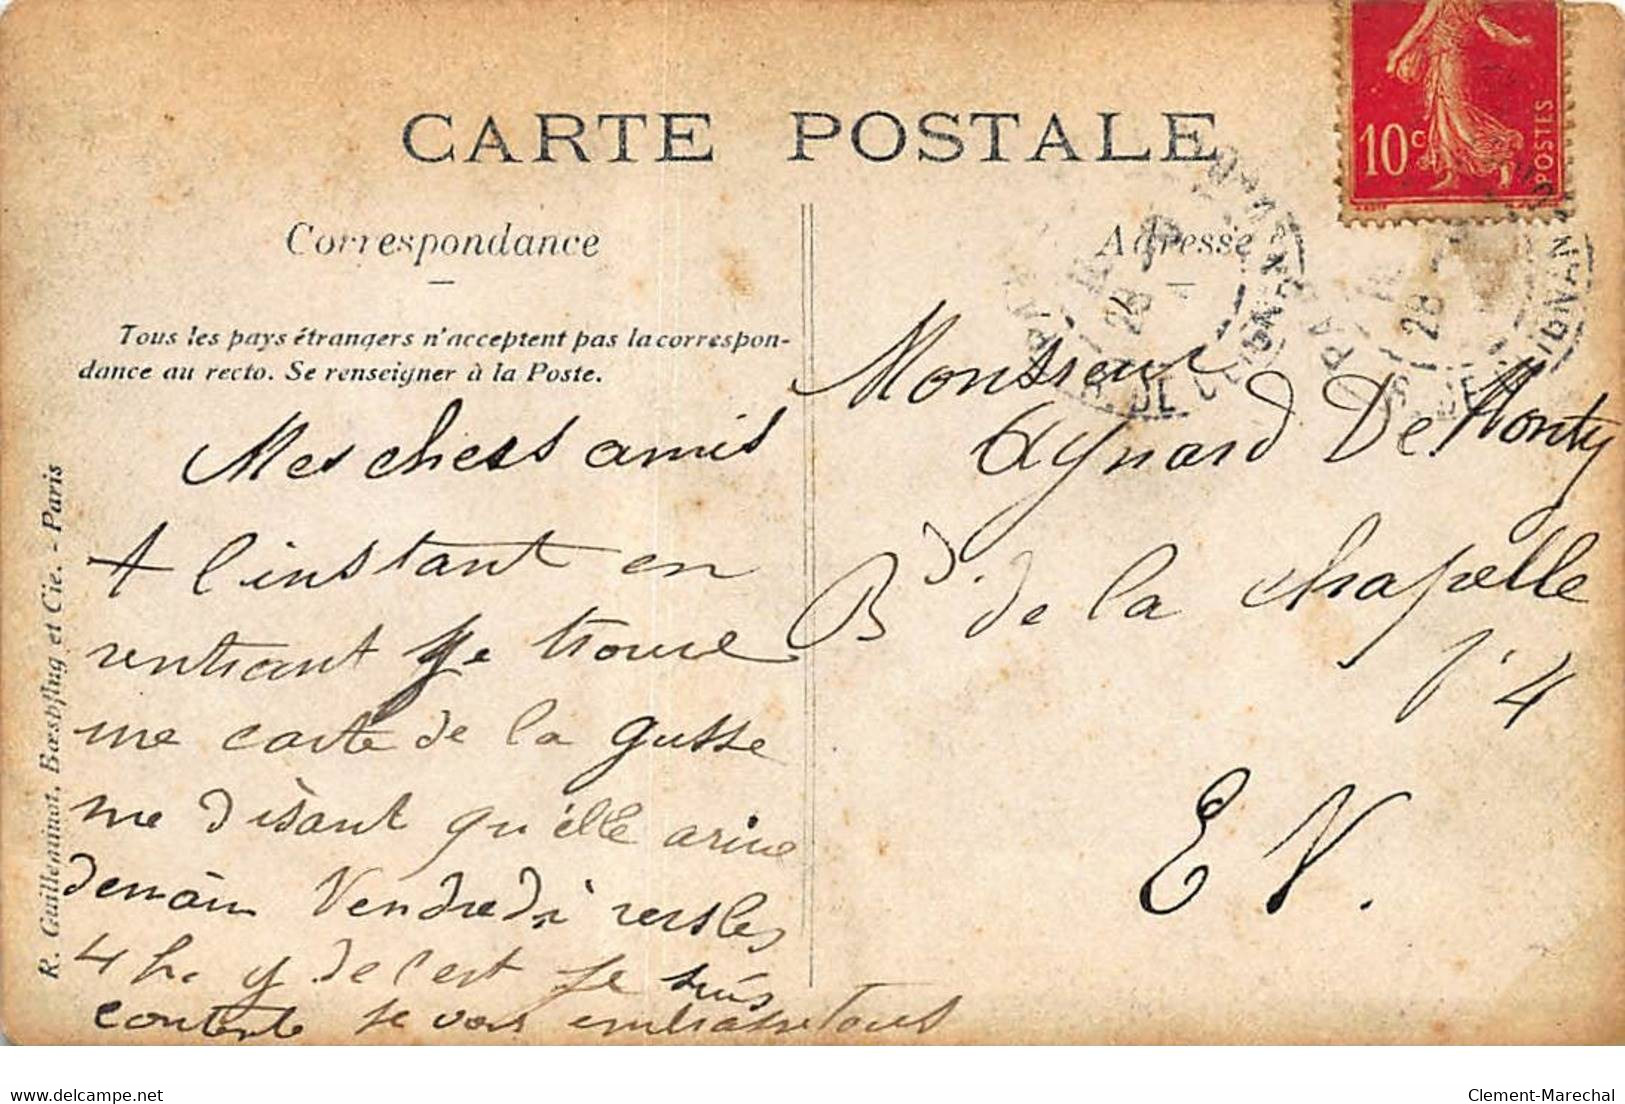 CARTE POSTALE
Correspondance
Adresse
Tous les pays étrangers n'acceptent pas la correspon-
dance au recto. Se renseigner à la Poste.
R. Guilleminot, Bœspflug et Cie. - Paris
10c
POSTES
Mes chers amis
A l'instant en
rentrant je trouve
une carte de la gusse
me disant qu'elle arive
demain Vendredi vers les
4 h. y de l'est je suis
contente je vous embrasse tous
Monsieur
Aynard De Monty
Bd. de la chapelle
4
E V.
PARIS
28
PARIS
28
delcampe.net
Clement-Marechal